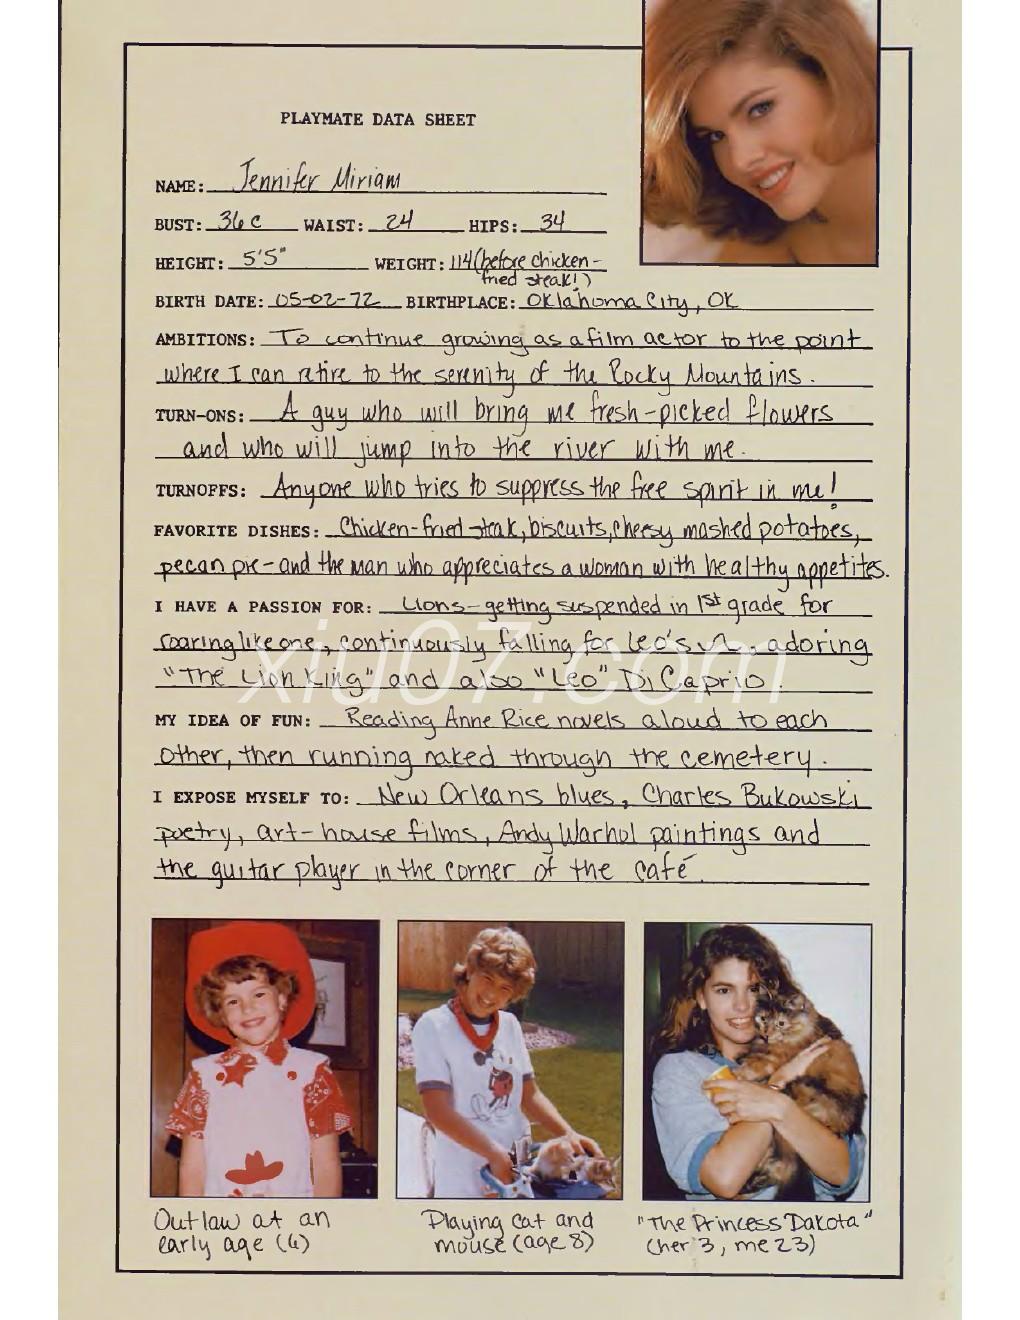 PLAYMATE DATA SHEET
NAME: Jennifer Miriam
BUST: 36C WAIST: 24 HIPS: 34
HEIGHT: 5'5" WEIGHT: 114 (before chicken-
fried steak!)
BIRTH DATE: 05-02-72 BIRTHPLACE: Oklahoma City, OK
AMBITIONS: To continue growing as a film actor to the point
where I can retire to the serenity of the Rocky Mountains.
TURN-ONS: A guy who will bring me fresh-picked flowers
and who will jump into the river with me.
TURNOFFS: Anyone who tries to suppress the free spirit in me!
FAVORITE DISHES: Chicken-fried steak, biscuits, cheesy mashed potatoes,
pecan pie-and the man who appreciates a woman with healthy appetites.
I HAVE A PASSION FOR: Lions-getting suspended in 1st grade for
roaring like one, continuously falling for Leo's ♌, adoring
"The Lion King" and also "Leo" DiCaprio.
xiu07.com
MY IDEA OF FUN: Reading Anne Rice novels aloud to each
other, then running naked through the cemetery.
I EXPOSE MYSELF TO: New Orleans blues, Charles Bukowski
poetry, art-house films, Andy Warhol paintings and
the guitar player in the corner of the café.
Outlaw at an
early age (6)
Playing cat and
mouse (age 8)
"The Princess Dakota"
(her 3, me 23)